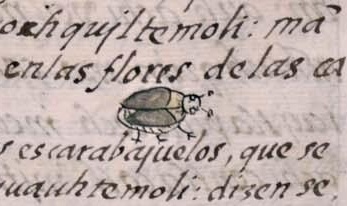 quiltemoli: mã
en las flores de las ca
s escarabajuelos, que se
quauhtemoli: dizen se,